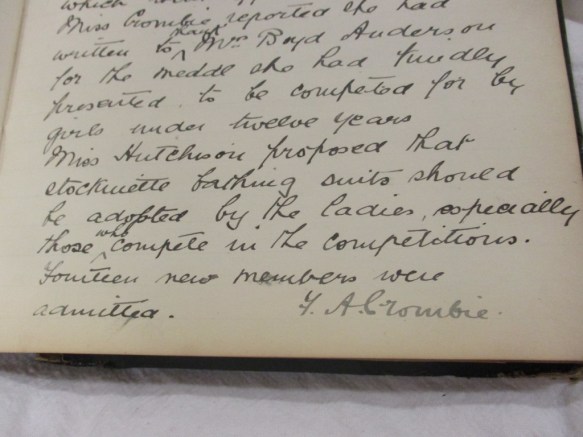 which
Miss Crombie reported she had
written to thank Mrs Boyd Anderson
for the medal she had kindly
presented to be competed for by
girls under twelve years
Miss Hutchison proposed that
stockinette bathing suits should
be adopted by the ladies, especially
those who compete in the competitions.
Fourteen new members were
admitted. F. A. Crombie.